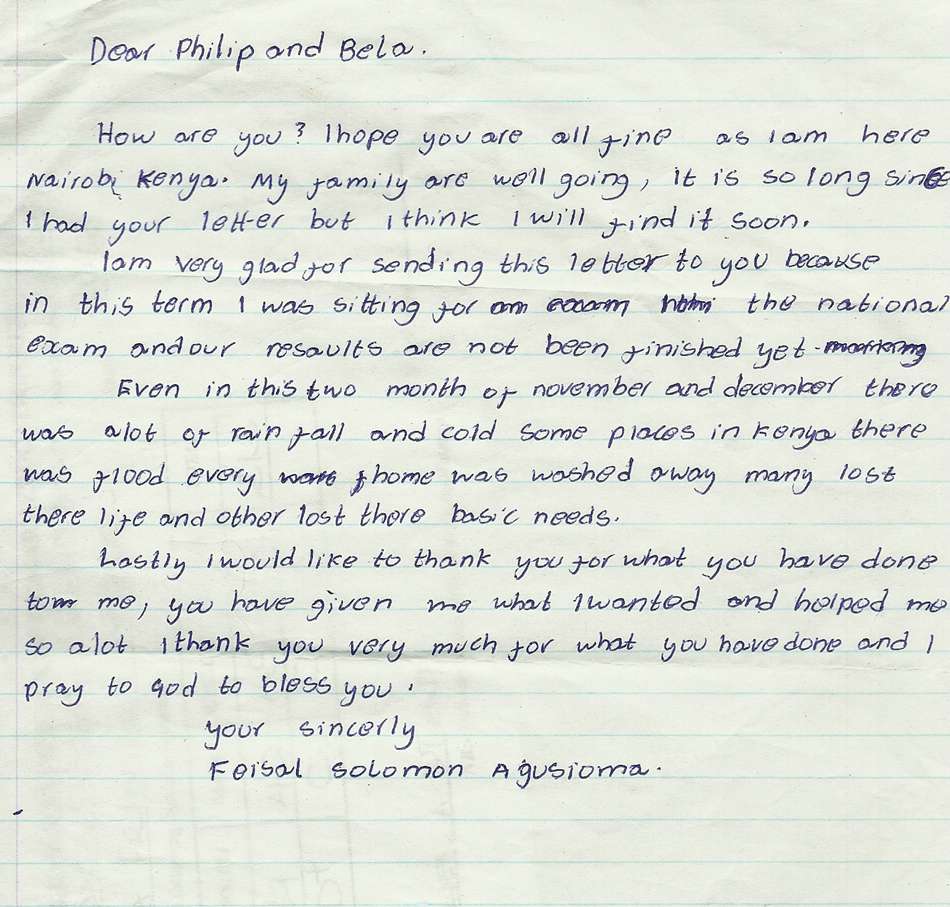 Dear Philip and Bela.
How are you? I hope you are all fine as I am here
Nairobi Kenya. My family are well going, it is so long since
I had your letter but I think I will find it soon.
Iam very glad for sending this letter to you because
in this term I was sitting for the national
exam and our resaults are not been finished yet.
Even in this two month of november and december there
was alot of rain fall and cold some places in Kenya there
was flood every home was washed away many lost
there life and other lost there basic needs.
Lastly I would like to thank you for what you have done
to me, you have given me what I wanted and helped me
so alot I thank you very much for what you have done and I
pray to god to bless you.
your sincerly
Feisal Solomon Agusioma.